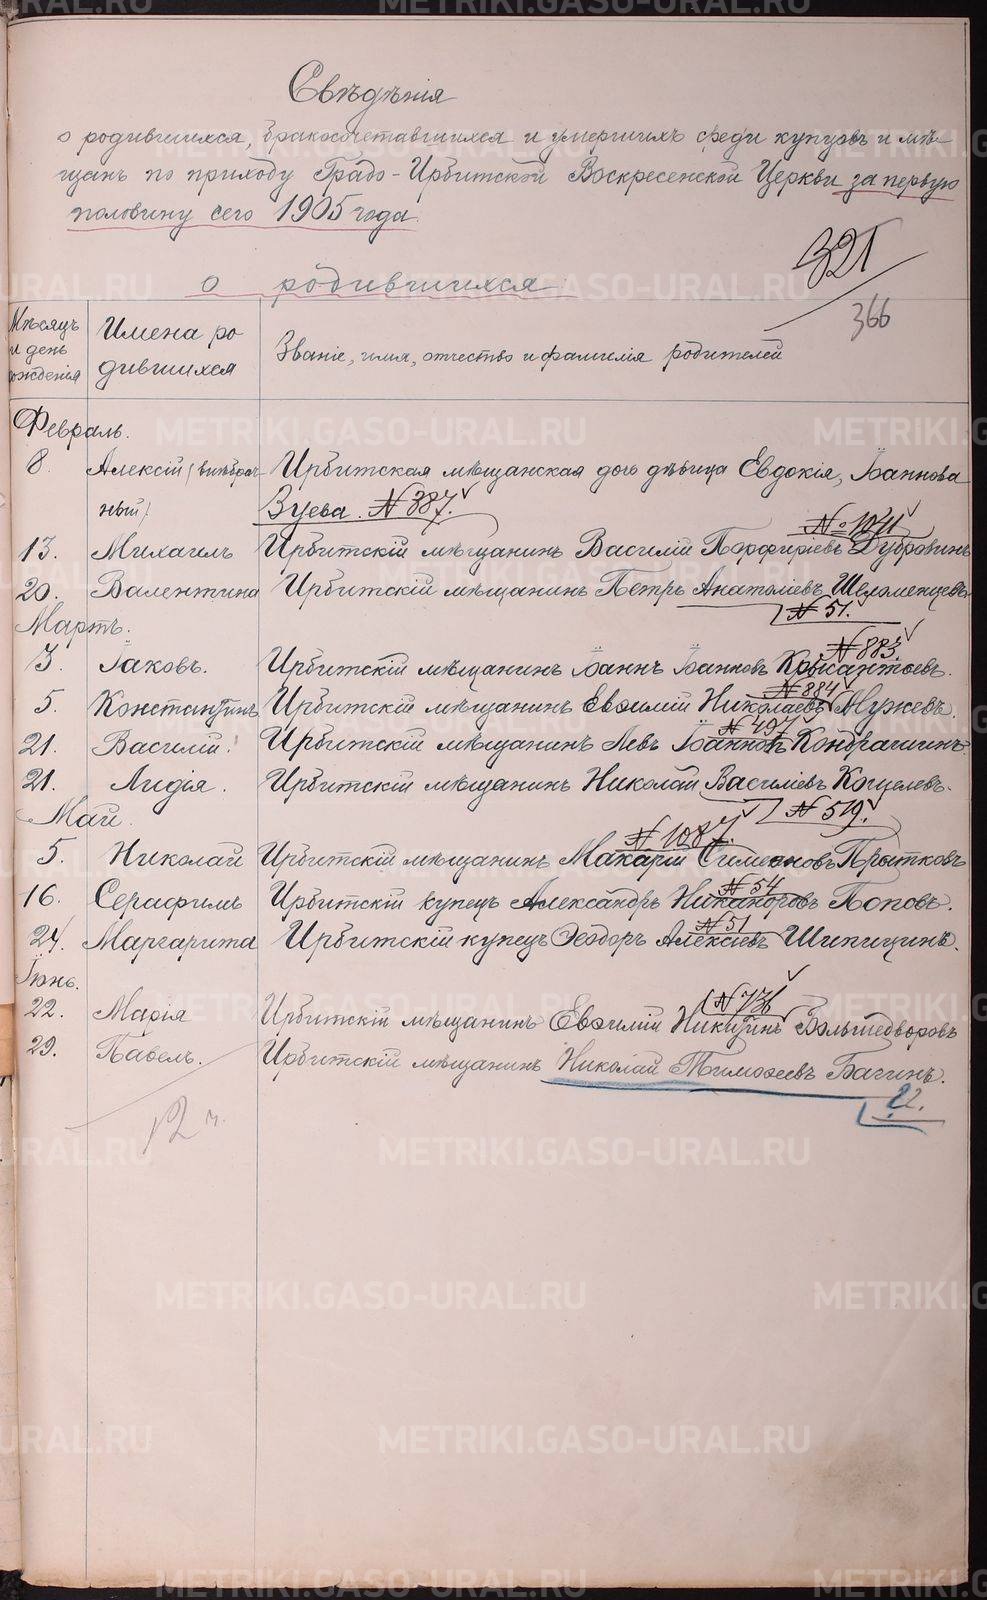 Свѣдѣнія
о родившихся, бракосочетавшихся и умершихъ среди купцовъ и мѣ-
щанъ по приходу Градо-Ирбитской Воскресенской Церкви за первую
половину сего 1905 года.
321
366
о родившихся
Мѣсяцъ и день рожденія
Имена родившихся
Званіе, имя, отчество и фамилія родителей
Февраль.
8. Алексій (внѣбрач- Ирбитская мѣщанская дочь дѣвица Евдокія Іоаннова
ный) Зуева. № 387.
№ 1041
13. Михаилъ Ирбитскій мѣщанинъ Василій Порфирьевъ Дубровинъ
20. Валентина Ирбитскій мѣщанинъ Петръ Анатоліевъ Шеломенцевъ.
№ 51.
Мартъ.
№ 883
3. Іаковъ. Ирбитскій мѣщанинъ Іоаннъ Іоанновъ
№ 884
5. Константинъ Ирбитскій мѣщанинъ Евѳимій Николаевъ Мужевъ.
№ 497
21. Василій. Ирбитскій мѣщанинъ Левъ Іоанновъ Кондрашинъ
21. Лидія. Ирбитскій мѣщанинъ Николай Василіевъ Кощелевъ.
№ 519.
Май.
№ 1087.
5. Николай Ирбитскій мѣщанинъ Макарій Симеоновъ Прытковъ
№ 54
16. Серафимъ Ирбитскій купецъ Александръ Никаноровъ Поповъ.
№ 51
24. Маргарита Ирбитскій купецъ Ѳеодоръ Алексіевъ Шипицинъ.
Іюнь.
№ 736
22. Марія Ирбитскій мѣщанинъ Евѳимій Никитинъ Большедворовъ
29. Павелъ. Ирбитскій мѣщанинъ Николай Тимоѳеевъ Багинъ.
22.
12 ч.
METRIKI.GASO-URAL.RU